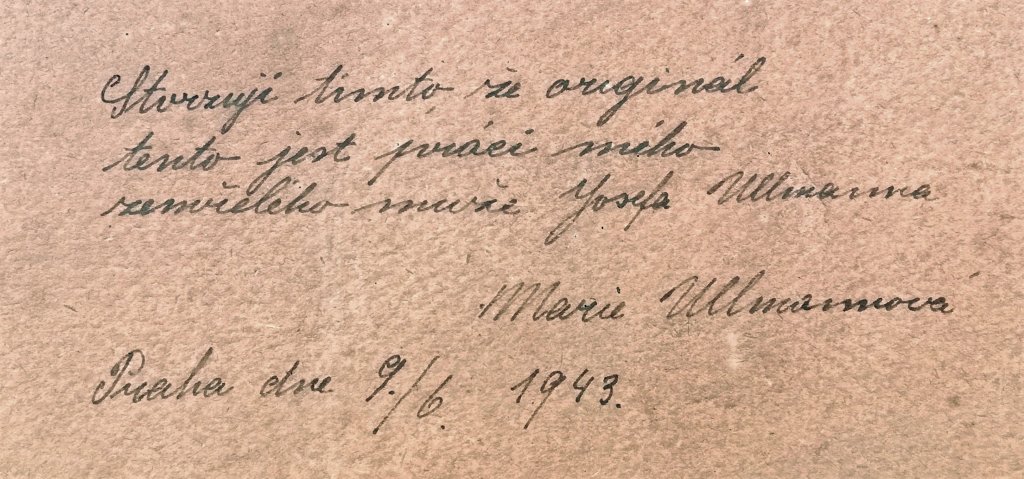 Stvrzuji tímto že originál
tento jest práci mého
zemřelého muže Josefa Ullmanna
Marie Ullmannová
Praha dne 9./6. 1943.